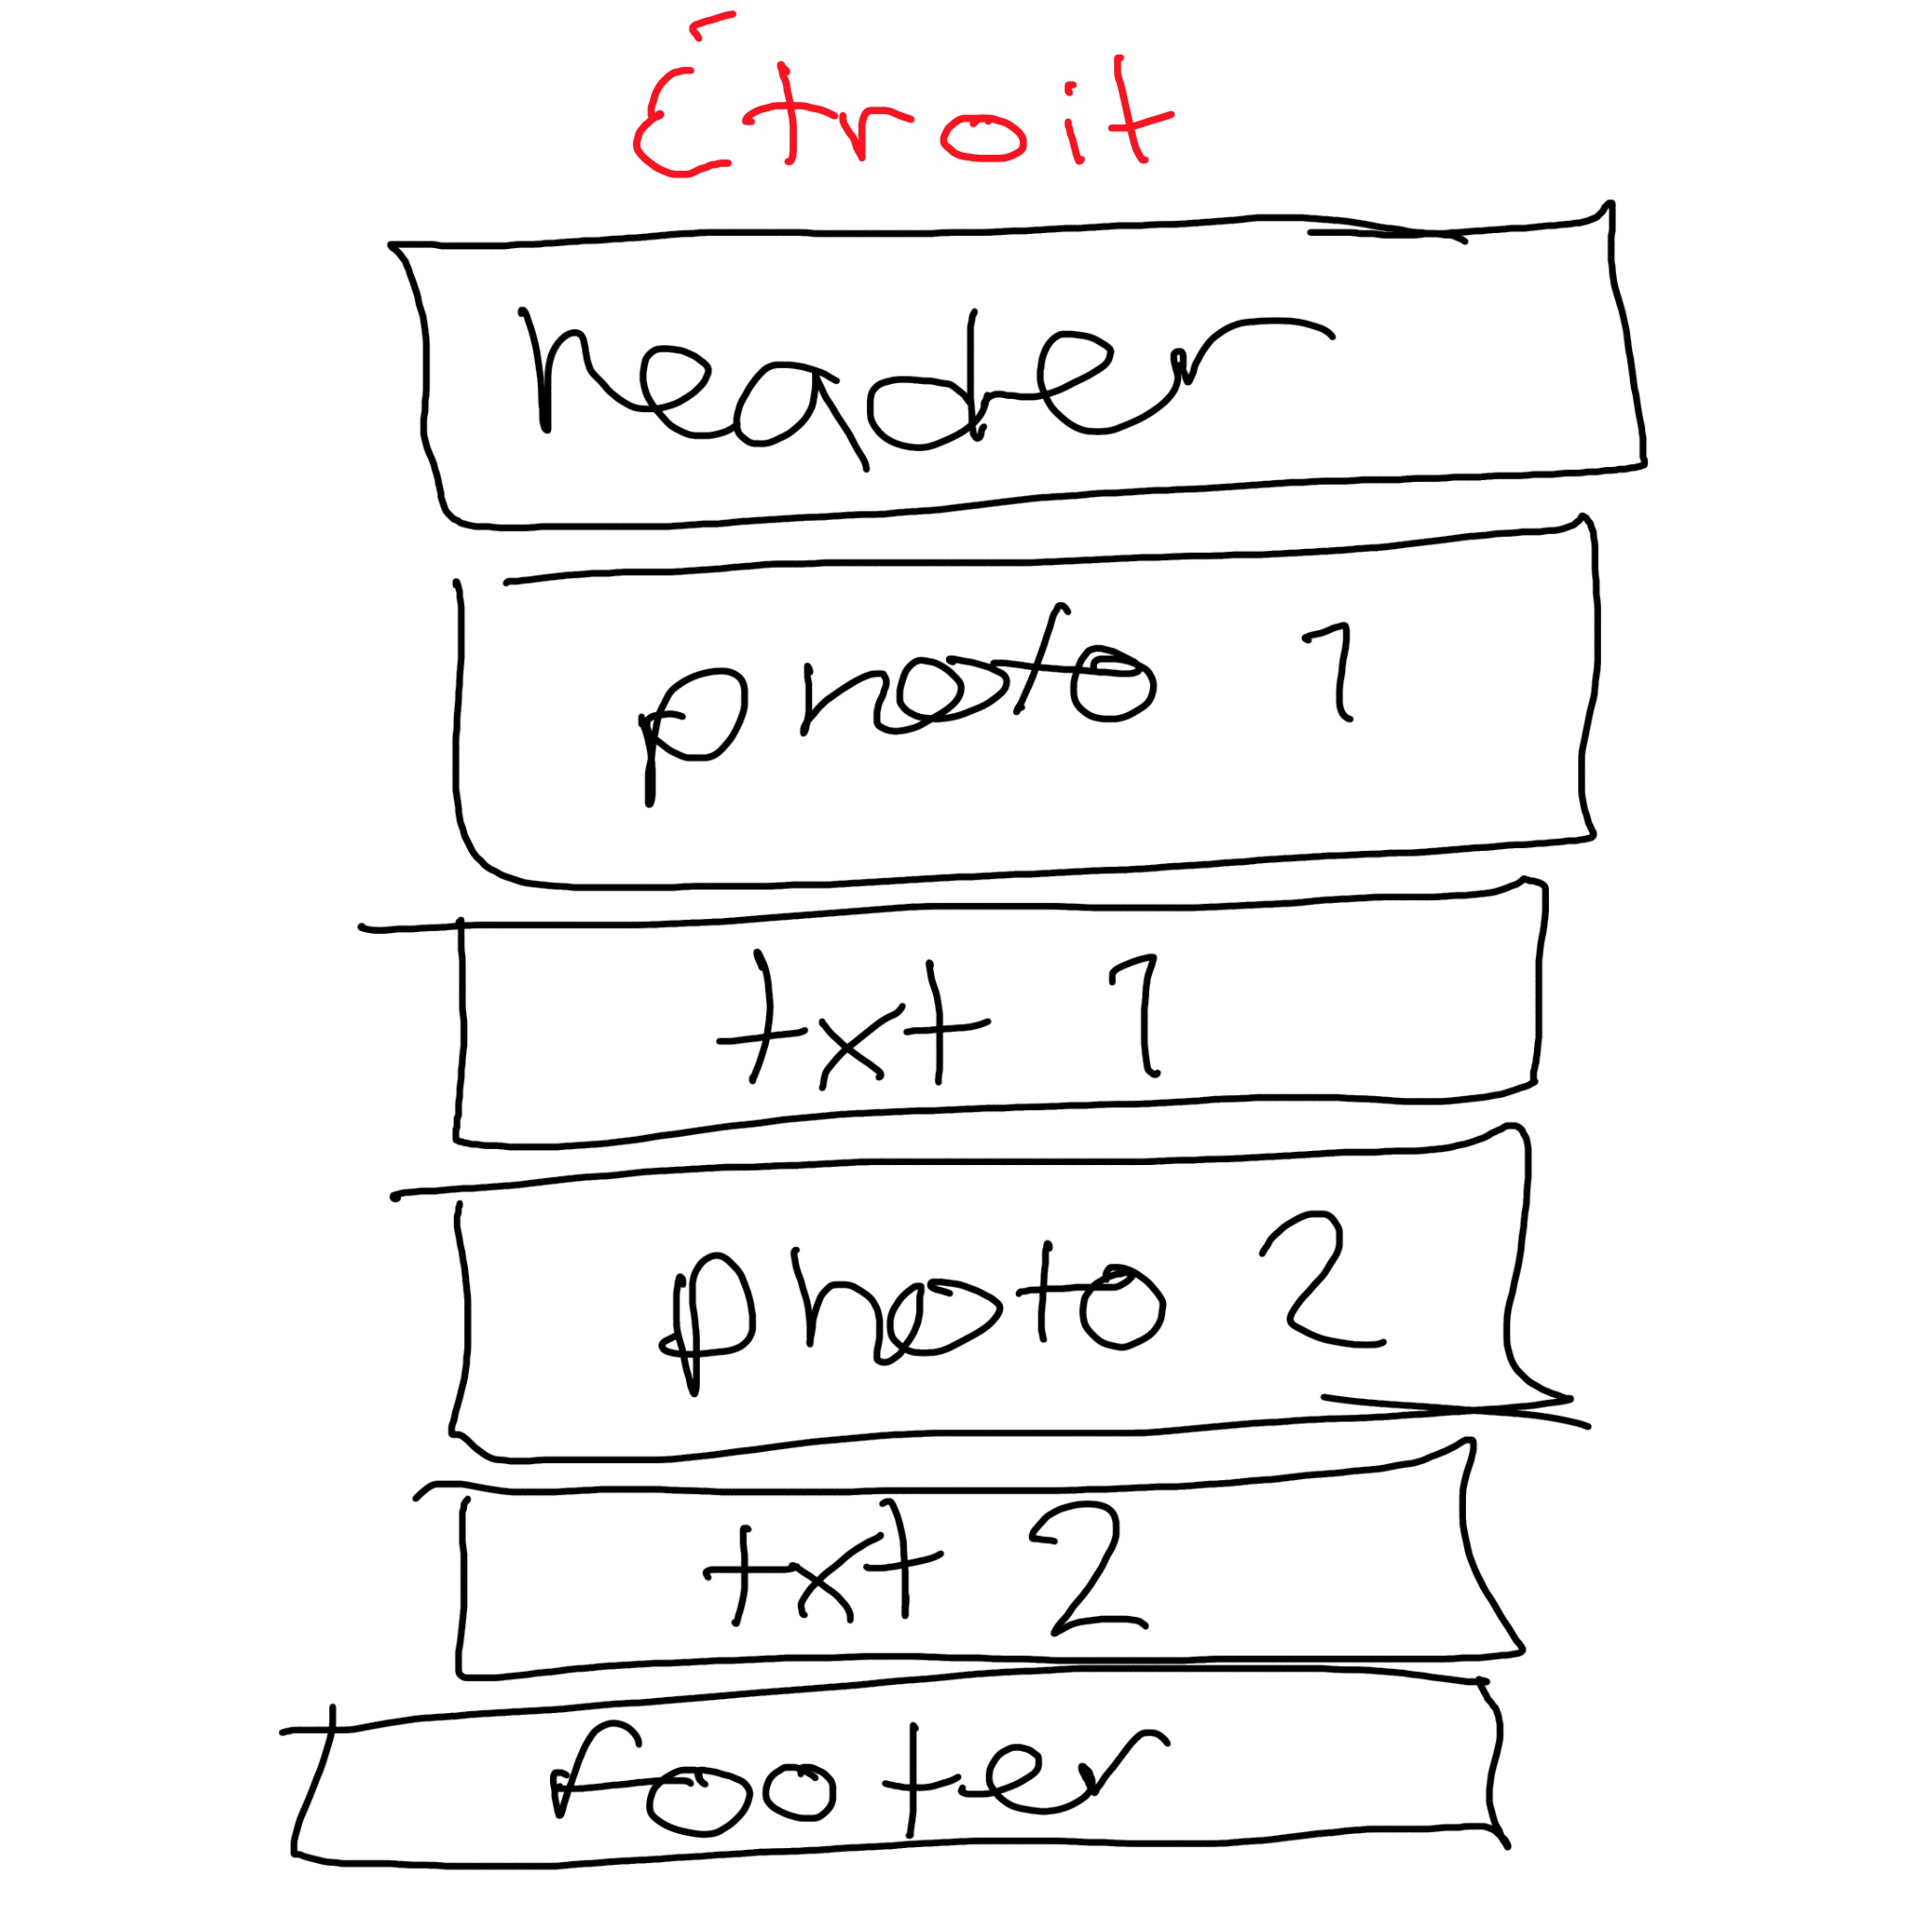 Étroit
header
photo 1
txt 1
photo 2
txt 2
footer